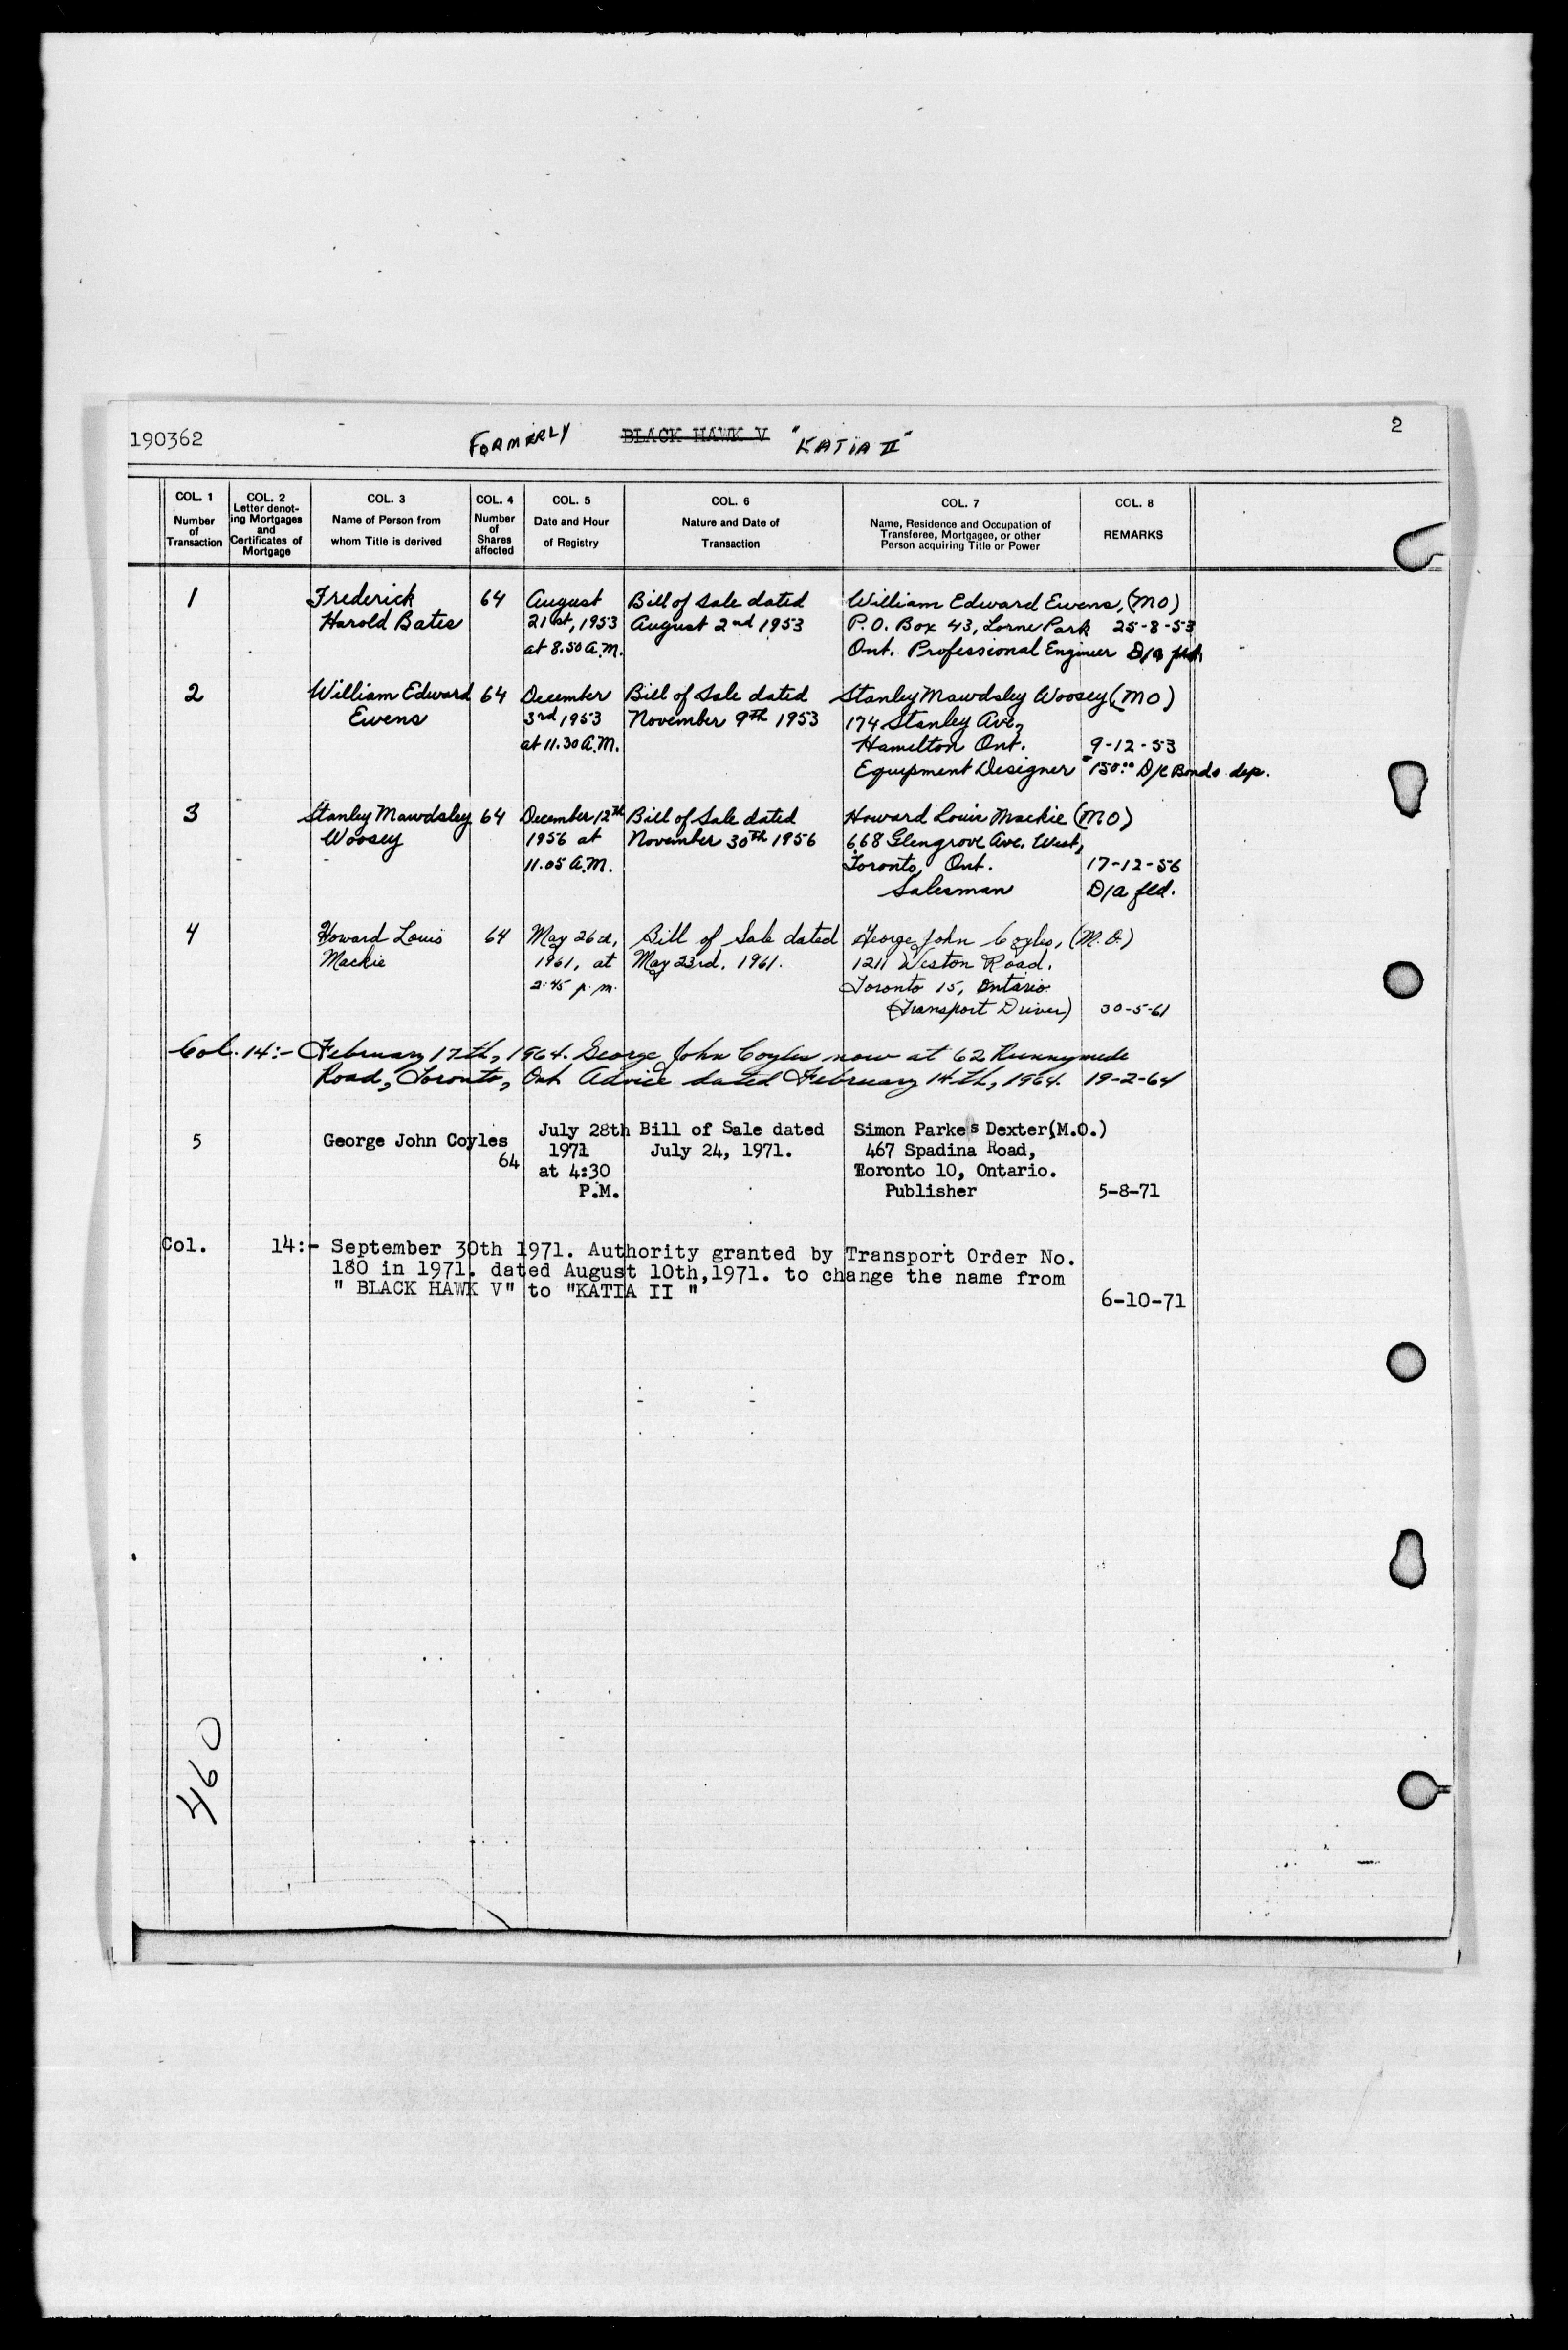 190362 FORMERLY BLACK HAWK V "KATIA II" 2
COL. 1 Number of Transaction
COL. 2 Letter denoting Mortgages and Certificates of Mortgage
COL. 3 Name of Person from whom Title is derived
COL. 4 Number of Shares affected
COL. 5 Date and Hour of Registry
COL. 6 Nature and Date of Transaction
COL. 7 Name, Residence and Occupation of Transferee, Mortgagee, or other Person acquiring Title or Power
COL. 8 REMARKS
1 Frederick 64 August Bill of Sale dated William Edward Ewens, (MO)
Harold Bates 21st, 1953 August 2nd 1953 P.O. Box 43, Lorne Park 25-8-53
at 8.50 A.M. Ont. Professional Engineer D/a
2 William Edward 64 December Bill of Sale dated Stanley Mawdsley Woosey (MO)
Ewens 3rd 1953 November 9th 1953 174 Stanley Ave,
at 11.30 A.M. Hamilton Ont. 9-12-53
Equipment Designer 150.00 Bonds dep.
3 Stanley Mawdsley 64 December 12th Bill of Sale dated Howard Louis Mackie (MO)
Woosey 1956 at November 30th 1956 668 Glengrove Ave. West,
11.05 A.M. Toronto, Ont. 17-12-56
Salesman D/a fld.
4 Howard Louis 64 May 26th, Bill of Sale dated George John Coyles, (M.O.)
Mackie 1961, at May 23rd. 1961. 1211 Weston Road,
2:45 p.m. Toronto 15, Ontario
(Transport Driver) 30-5-61
Col. 14:- February 17th, 1964. George John Coyles now at 62 Runnymede
Road, Toronto, Ont. Advice dated February 14th, 1964. 19-2-64
5 George John Coyles 64 July 28th Bill of Sale dated Simon Parkes Dexter(M.O.)
1971 July 24, 1971. 467 Spadina Road,
at 4:30 Toronto 10, Ontario.
P.M. Publisher 5-8-71
Col. 14:- September 30th 1971. Authority granted by Transport Order No.
180 in 1971. dated August 10th,1971. to change the name from
" BLACK HAWK V" to "KATIA II "
6-10-71
460